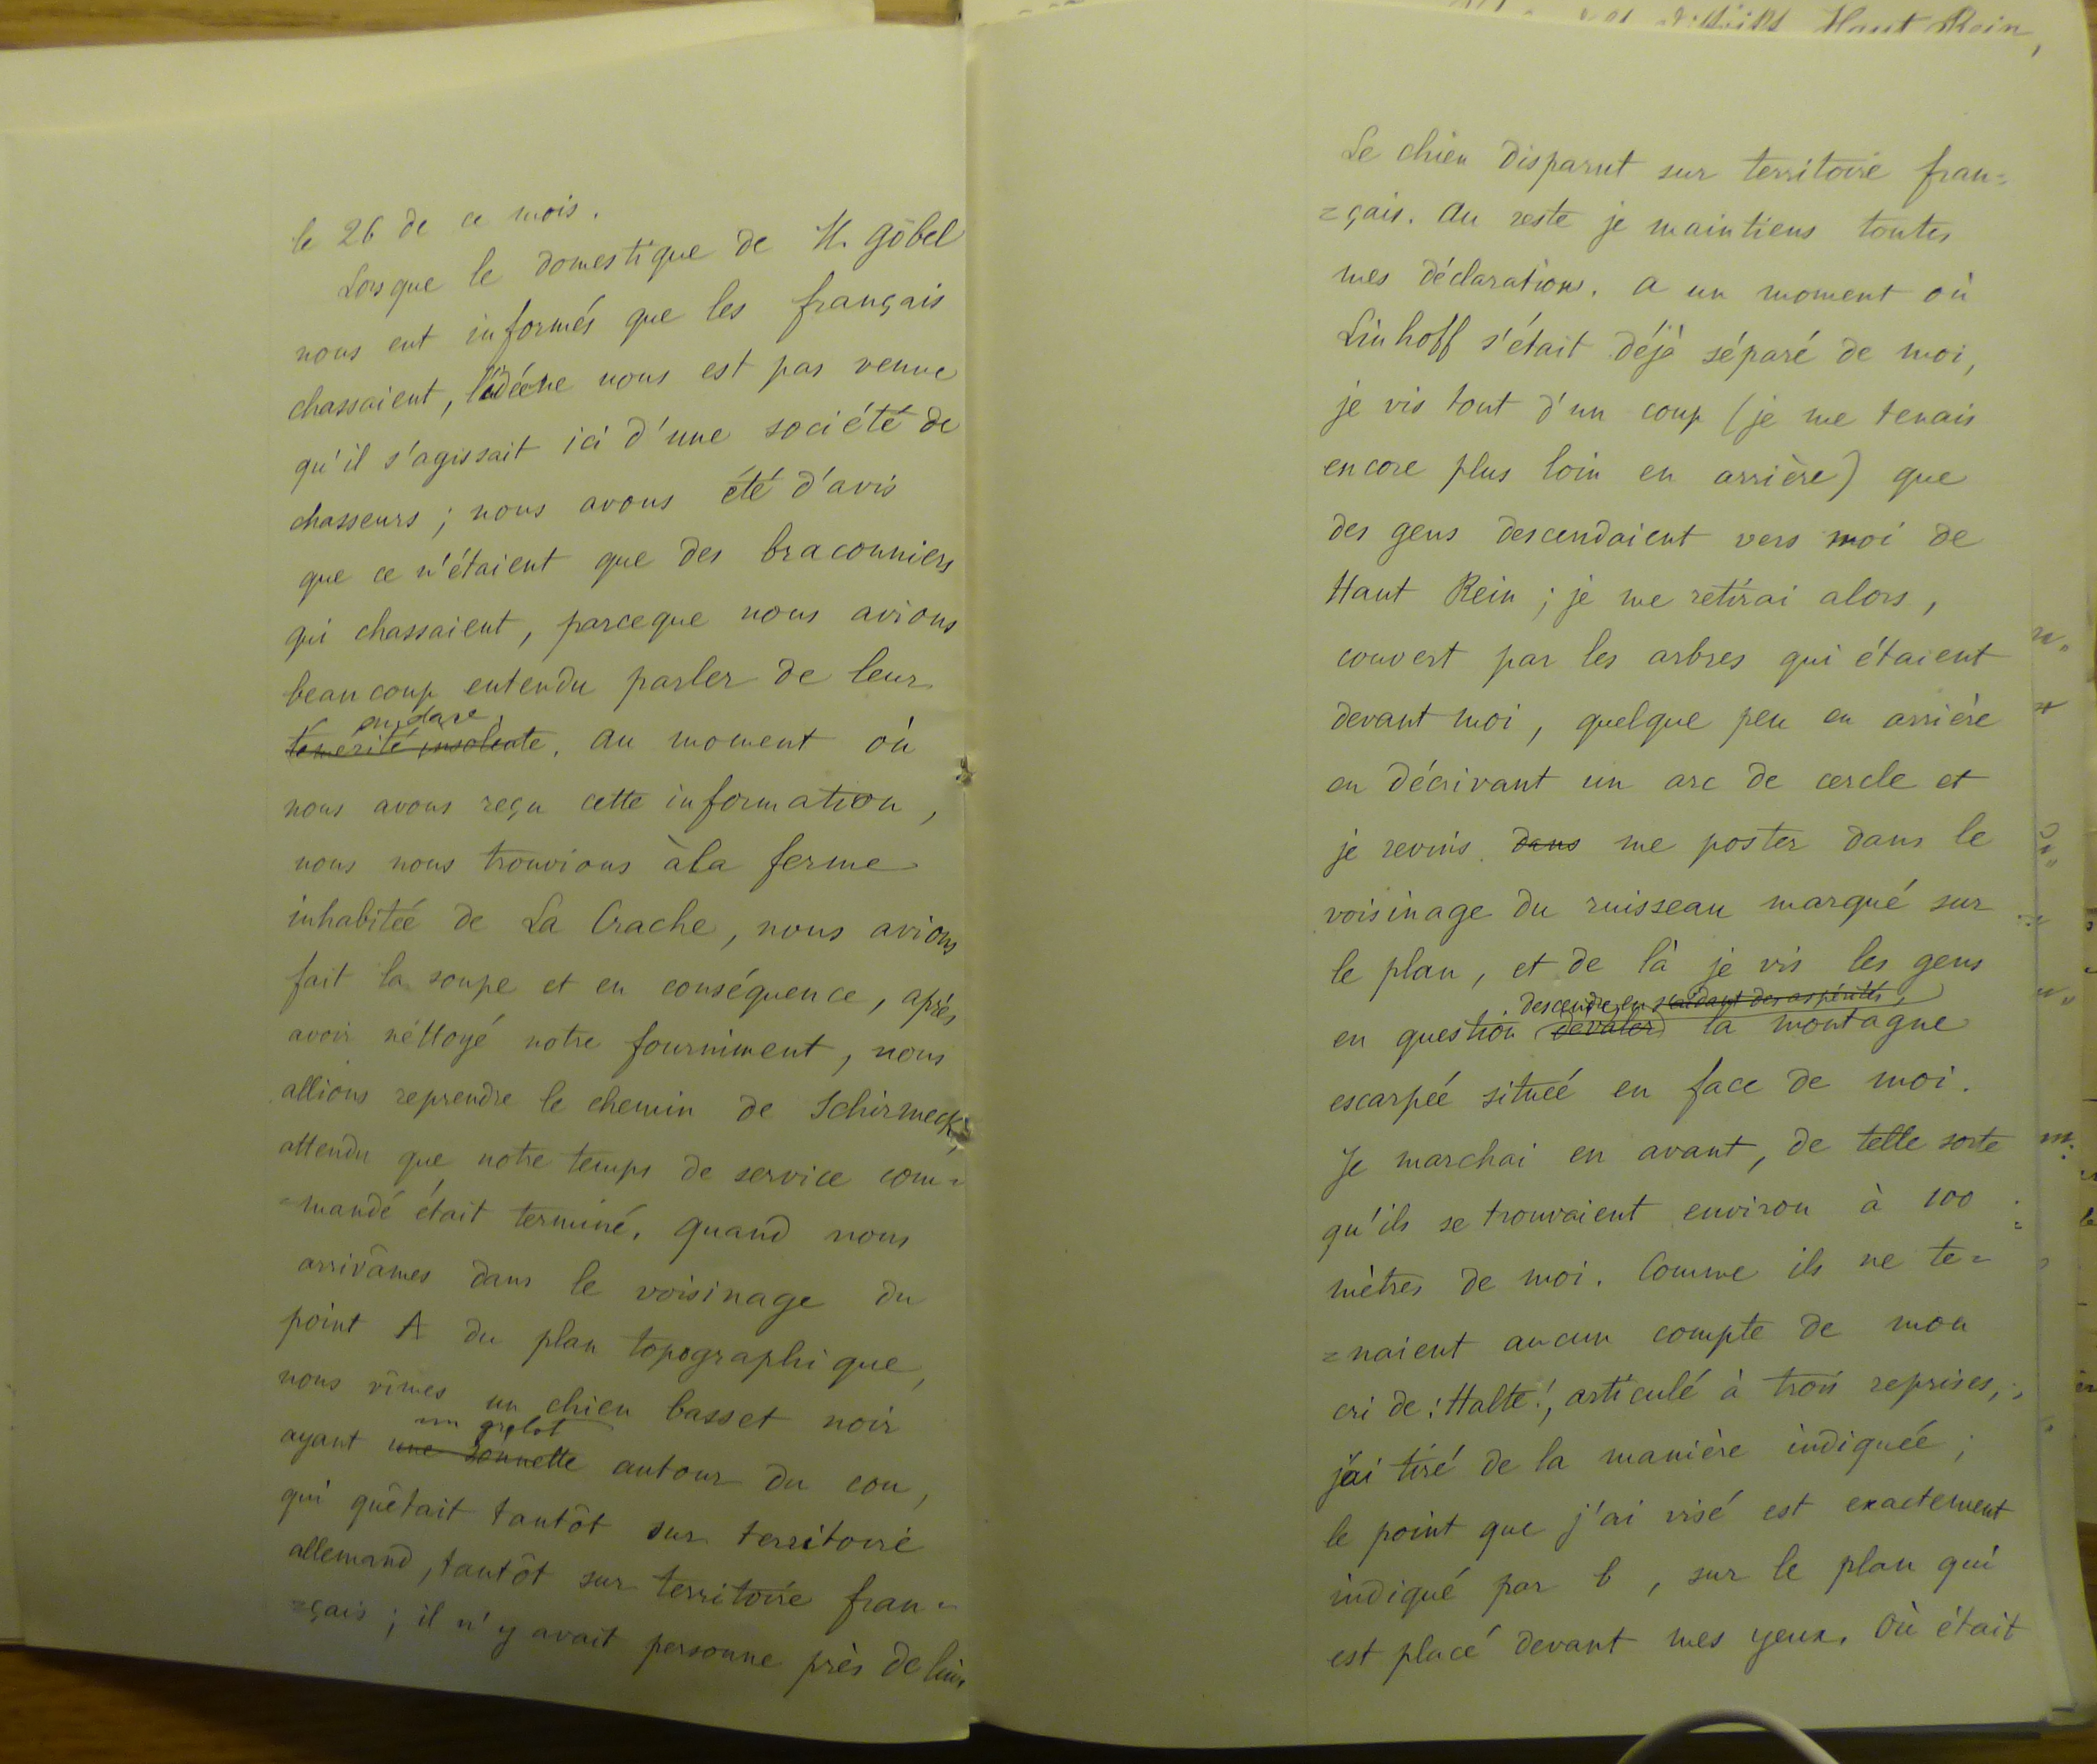 le 26 de ce mois.
Lorsque le domestique de H. Göbel
nous eut informés que les français
chassaient, l'idée ne nous est pas venue
qu'il s'agissait ici d'une société de
chasseurs ; nous avons été d'avis
que ce n'étaient que des braconniers
qui chassaient, parceque nous avions
beaucoup entendu parler de leur
audace
témérité insolente. Au moment où
nous avons reçu cette information,
nous nous trouvions à la ferme
inhabitée de La Crache, nous avions
fait la soupe et en conséquence, après
avoir néttoyé notre fourniment, nous
allions reprendre le chemin de Schirmeck,
attendu que notre temps de service com=
=mandé était terminé. Quand nous
arrivâmes dans le voisinage du
point A du plan topographique,
nous vîmes un chien basset noir
un grelot
ayant une sonnette autour du cou,
qui quêtait tantôt sur territoire
allemand, tantôt sur territoire fran=
=çais ; il n'y avait personne près de lui.
Haut Rein,
Le chien disparut sur territoire fran=
=çais. Au reste je maintiens toutes
mes déclarations. A un moment où
Linhoff s'était déjà séparé de moi,
je vis tout d'un coup (je me tenais
encore plus loin en arrière) que
des gens descendaient vers moi de
Haut Rein ; je me retirai alors,
couvert par les arbres qui étaient
devant moi, quelque peu en arrière
en décrivant un arc de cercle et
je revins dans me poster dans le
voisinage du ruisseau marqué sur
le plan, et de là je vis les gens
descendre en s'aidant des aspérités
en question dévaler la montagne
escarpée située en face de moi.
Je marchai en avant, de telle sorte
qu'ils se trouvaient environ à 100
mètres de moi. Comme ils ne te=
=naient aucun compte de mon
cri de : Halte !, articulé à trois reprises,
j'ai tiré de la manière indiquée ;
le point que j'ai visé est exactement
indiqué par b, sur le plan qui
est placé devant mes yeux. Où était